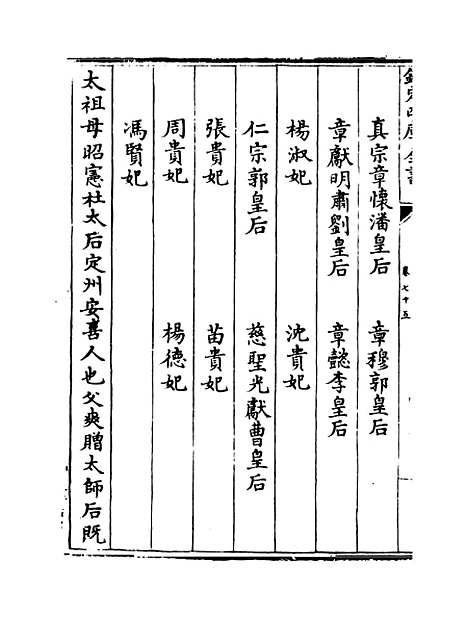 欽定四庫全書
卷七十五
真宗章懷潘皇后 章穆郭皇后
章獻明肅劉皇后 章懿李皇后
楊淑妃 沈貴妃
仁宗郭皇后 慈聖光獻曹皇后
張貴妃 苗貴妃
周貴妃 楊德妃
馮賢妃
太祖母昭憲杜太后定州安喜人也父爽贈太師后既